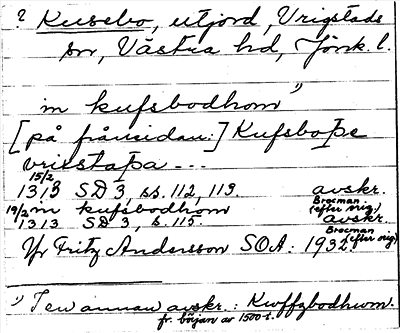 ? Kusebo, utjord, Vrigstads
sn, Västra hd, Jönk. l.
in kufsbodhom¹⁾
[på frånsidan:] Kufsboþe
vriestaþa ---
15/2 1313 SD 3, ss. 112, 113. avskr.
Brocman (efter orig.)
19/2 in kufsbodhom
1313 SD 3, s. 115. avskr.
Brocman (efter orig)
Yr Fritz Andersson SOA. 1932
¹⁾ I en annan avskr.: Kwffzbodhwm.
fr. början av 1500-t.